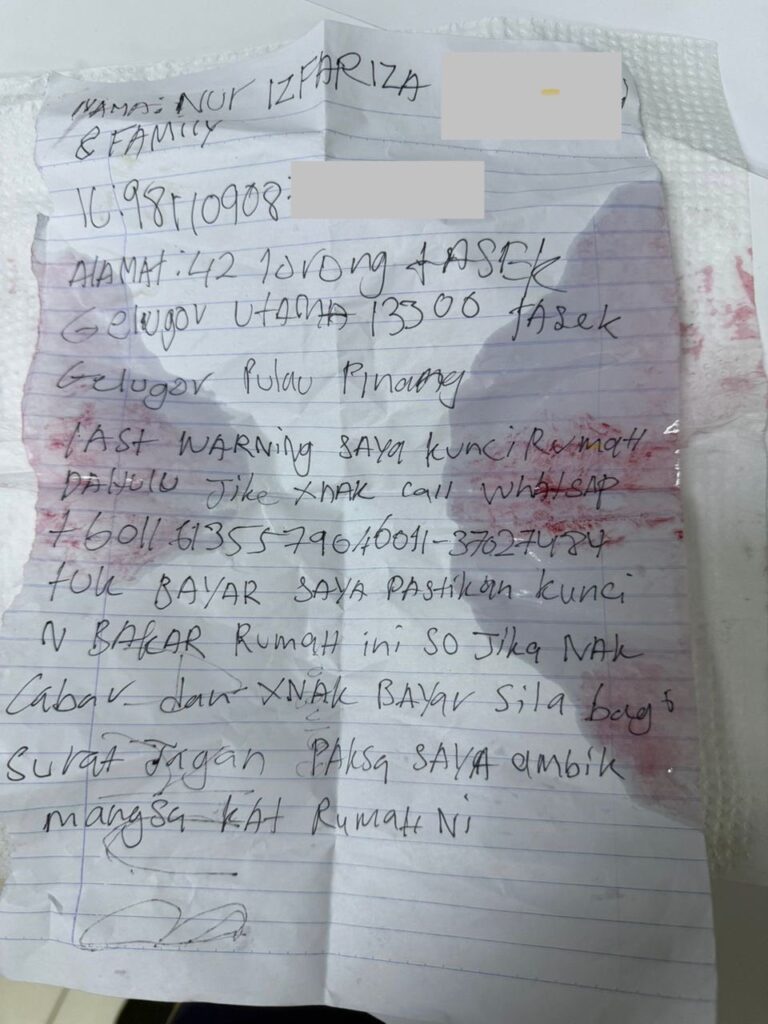 NAMA: NUR IZFARIZA
& FAMILY
IC:98110908:
ALAMAT:42 lorong tASEK
Gelugor UtAMA 13300 tASek
Gelugor Pulau Pinang
LASt WARNing SAYA kunci RumaH
DAHULU Jike XNAK call WHAtSAP
+6011.61355790/6011-37027484
tuk BAYAR SAYA PAStikan kunci
N BAKAR RumaH ini SO Jika NAK
Cabar dan XNAK BAYAr Sila bagi
Surat Jagan PAksa SAYA ambik
mangsa KAt RumaH Ni